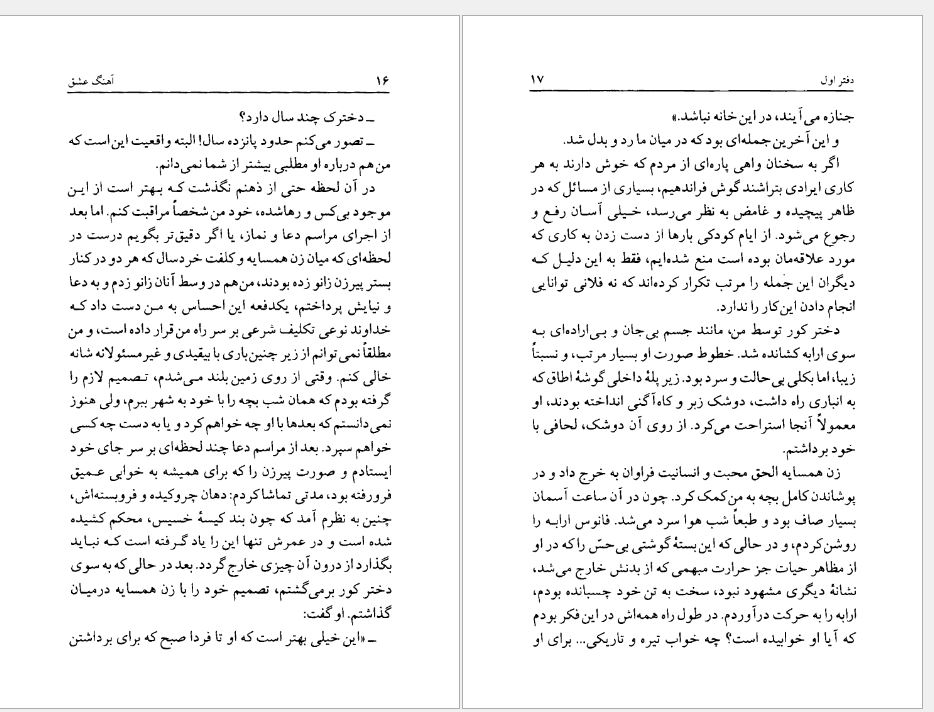 ۱۶ آهنگ عشق
ـ دخترک چند سال دارد؟
ـ تصور می‌کنم حدود پانزده سال! البته واقعیت این است که
من هم درباره او مطلبی بیشتر از شما نمی‌دانم.
در آن لحظه حتی از ذهنم نگذشت که بهتر است از این
موجود بی‌کس و رهاشده، خود من شخصاً مراقبت کنم. اما بعد
از اجرای مراسم دعا و نماز، یا اگر دقیق‌تر بگویم درست در
لحظه‌ای که میان زن همسایه و کلفت خردسال که هر دو در کنار
بستر پیرزن زانو زده بودند، من هم در وسط آنان زانو زدم و به دعا
و نیایش پرداختم، یکدفعه این احساس به من دست داد که
خداوند نوعی تکلیف شرعی بر سر راه من قرار داده است، و من
مطلقاً نمی‌توانم از زیر چنین باری با بیقیدی و غیرمسئولانه شانه
خالی کنم. وقتی از روی زمین بلند می‌شدم، تصمیم لازم را
گرفته بودم که همان شب بچه را با خود به شهر ببرم، ولی هنوز
نمی‌دانستم که بعدها با او چه خواهم کرد و یا به دست چه کسی
خواهم سپرد. بعد از مراسم دعا چند لحظه‌ای بر سر جای خود
ایستادم و صورت پیرزن را که برای همیشه به خوابی عمیق
فرورفته بود، مدتی تماشا کردم: دهان چروکیده و فروبسته‌اش،
چنین به نظرم آمد که چون بند کیسهٔ خسیس، محکم کشیده
شده است و در عمرش تنها این را یاد گرفته است که نباید
بگذارد از درون آن چیزی خارج گردد. بعد در حالی که به سوی
دختر کور برمی‌گشتم، تصمیم خود را با زن همسایه درمیان
گذاشتم. او گفت:
ـ «این خیلی بهتر است که او تا فردا صبح که برای برداشتن
دفتر اول ۱۷
جنازه می‌آیند، در این خانه نباشد.»
و این آخرین جمله‌ای بود که در میان ما رد و بدل شد.
اگر به سخنان واهی پاره‌ای از مردم که خوش دارند به هر
کاری ایرادی بتراشند گوش فراندهیم، بسیاری از مسائل که در
ظاهر پیچیده و غامض به نظر می‌رسد، خیلی آسان رفع و
رجوع می‌شود. از ایام کودکی بارها از دست زدن به کاری که
مورد علاقه‌مان بوده است منع شده‌ایم، فقط به این دلیل که
دیگران این جمله را مرتب تکرار کرده‌اند که نه فلانی توانایی
انجام دادن این کار را ندارد.
دختر کور توسط من، مانند جسم بی‌جان و بی‌اراده‌ای به
سوی ارابه کشانده شد. خطوط صورت او بسیار مرتب، و نسبتاً
زیبا، اما بکلی بی‌حالت و سرد بود. زیر پلهٔ داخلی گوشهٔ اطاق که
به انباری راه داشت، دوشک زبر و کاه‌آگنی انداخته بودند، او
معمولاً آنجا استراحت می‌کرد. از روی آن دوشک، لحافی با
خود برداشتم.
زن همسایه الحق محبت و انسانیت فراوان به خرج داد و در
پوشاندن کامل بچه به من کمک کرد. چون در آن ساعت آسمان
بسیار صاف بود و طبعاً شب هوا سرد می‌شد. فانوس ارابه را
روشن کردم، و در حالی که این بستهٔ گوشتی بی‌حسّ را که در او
از مظاهر حیات جز حرارت مبهمی که از بدنش خارج می‌شد،
نشانهٔ دیگری مشهود نبود، سخت به تن خود چسبانده بودم،
ارابه را به حرکت درآوردم. در طول راه همه‌اش در این فکر بودم
که آیا او خوابیده است؟ چه خواب تیره و تاریکی... برای او